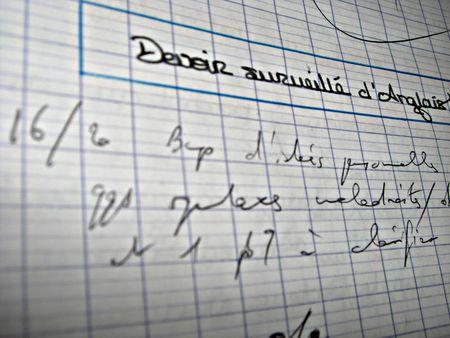 Devoir surveillé d'Anglais
16/20 Bcp d'idées personnelles
qqs maladroits/
et 1 à clarifier